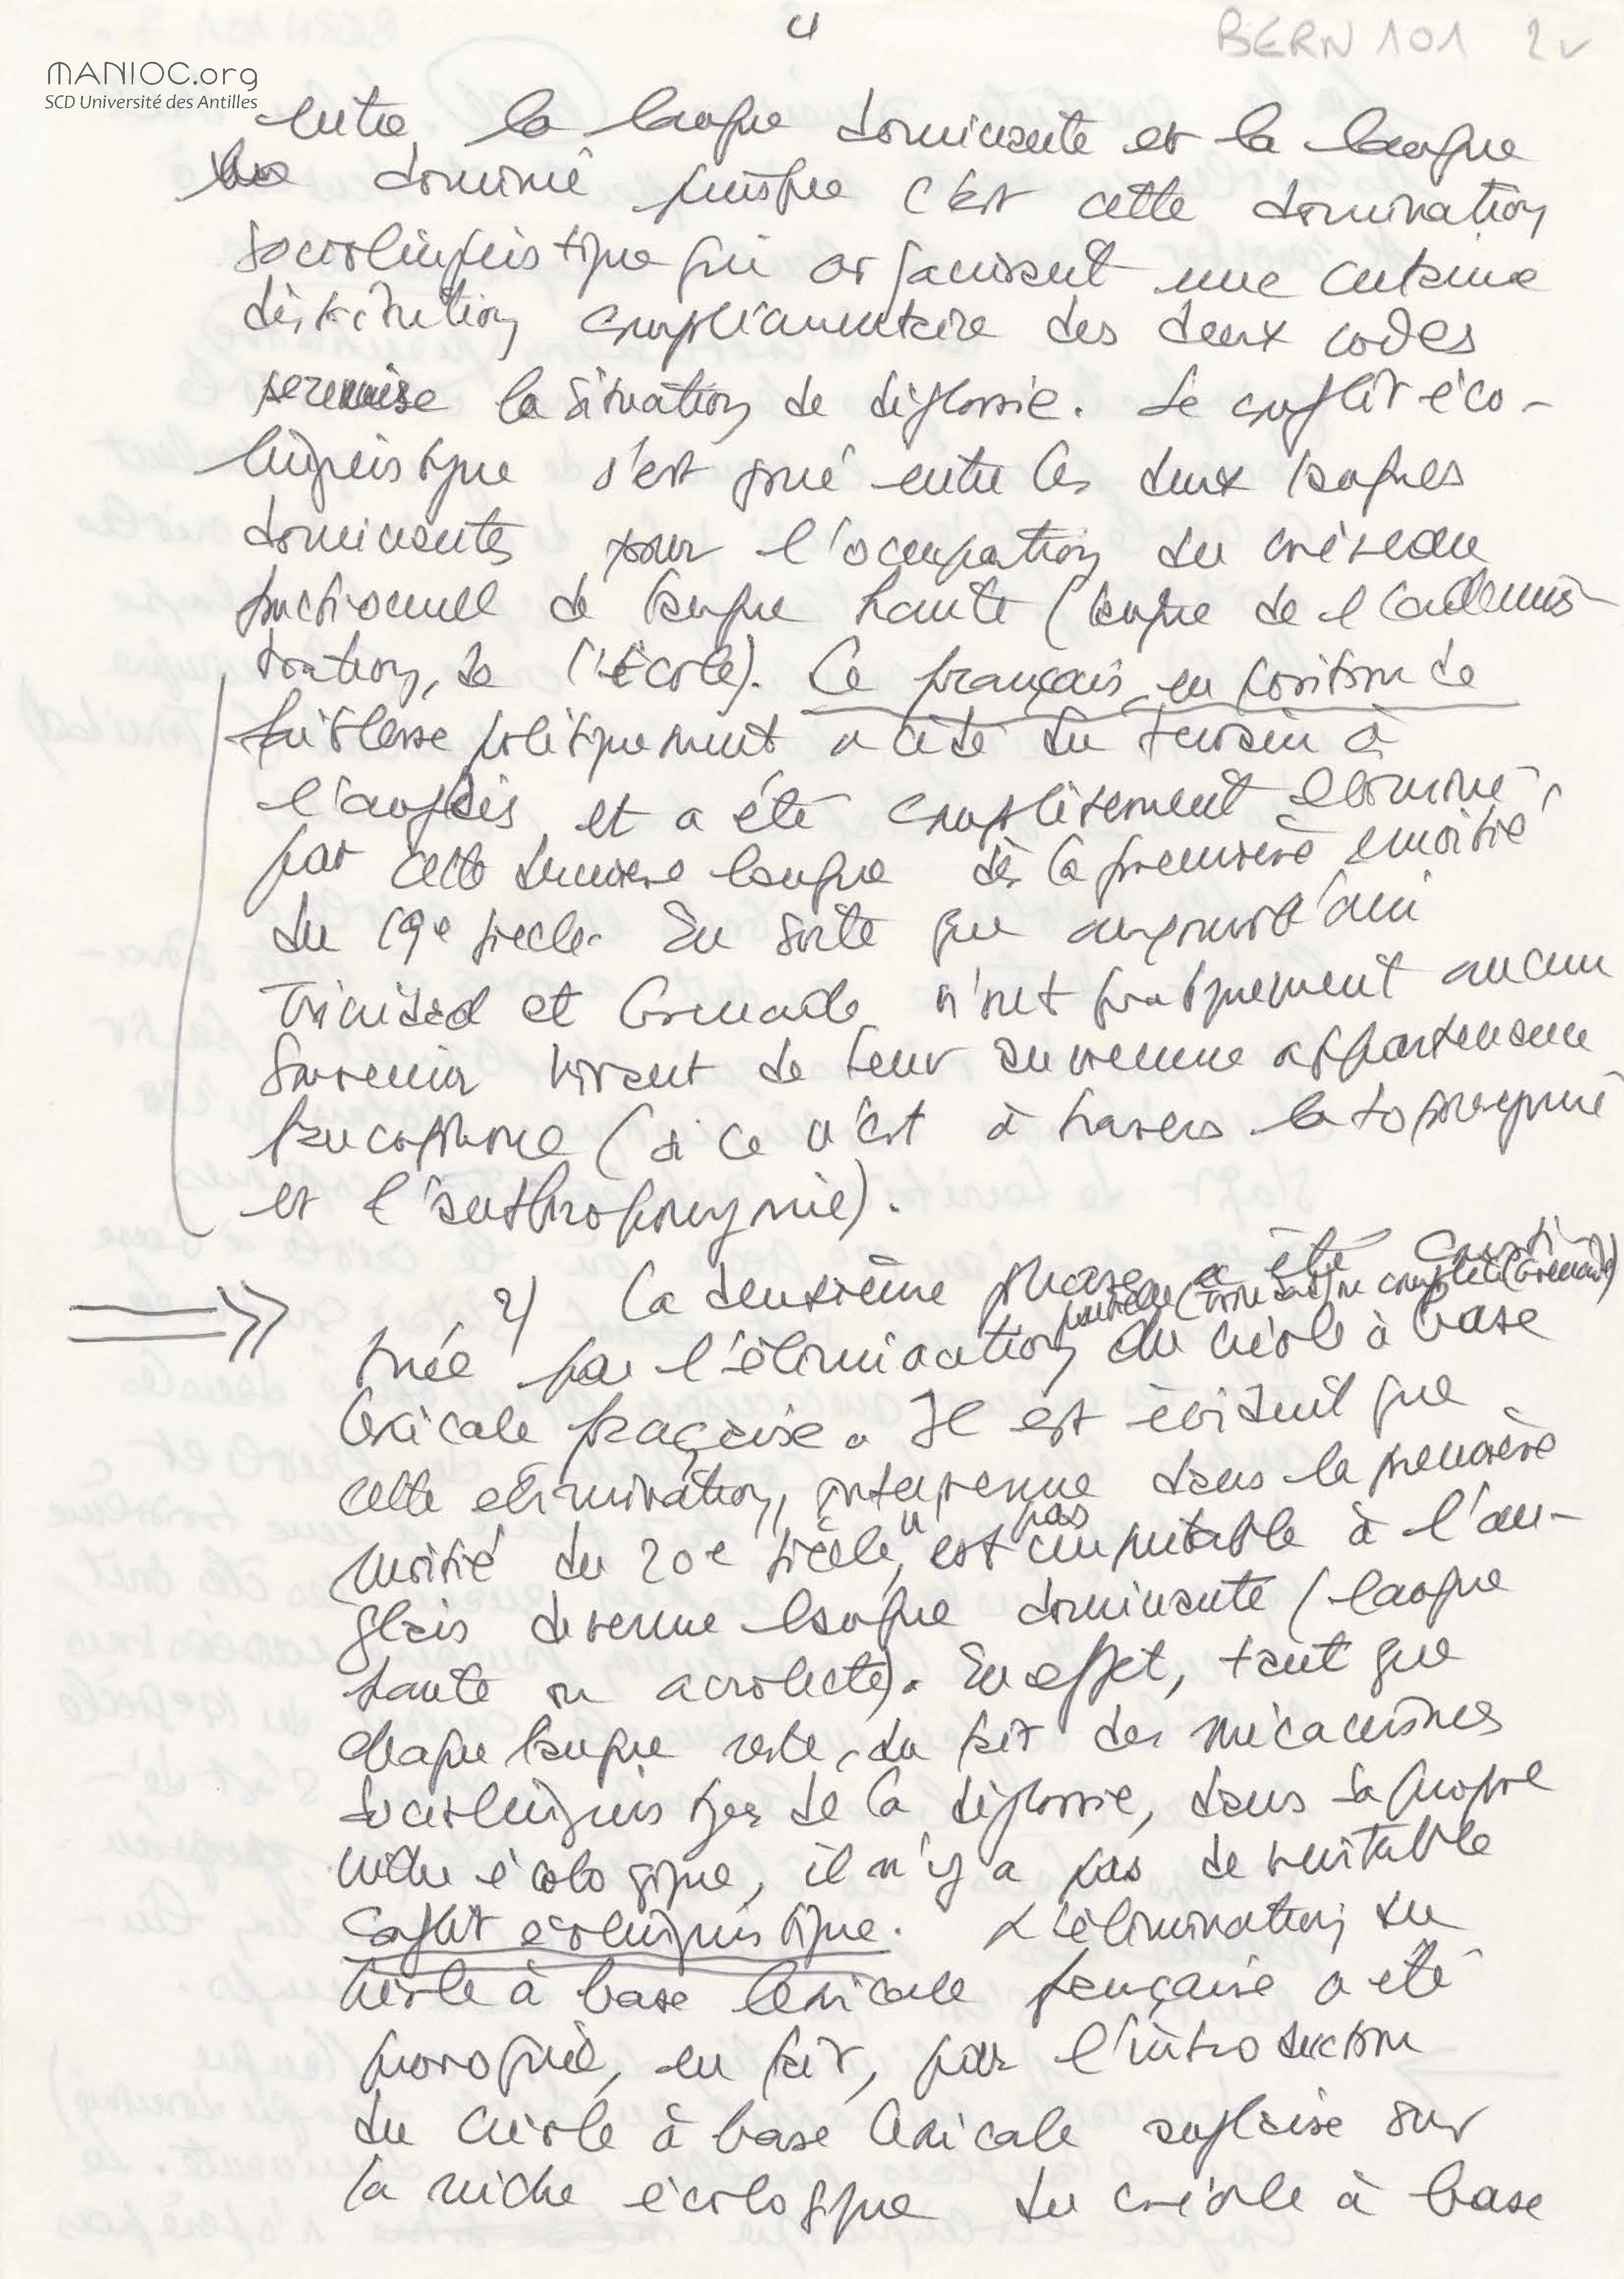 4
BERN 101 2v
MANIOC.org
SCD Université des Antilles
entre la langue dominante et la langue
dominé puisque c'est cette domination
sociolinguistique qui organisant une certaine
distribution complémentaire des deux codes
la situation de diglossie. Le conflit éco-
linguistique s'est joué entre les deux langues
dominantes pour l'occupation du créneau
fonctionnel de langue haute (langue de l'adminis-
tration, de l'école). Le français, en position de
faiblesse politiquement a cédé du terrain à
l'anglais et a été complètement éliminé,
par cette dernière langue dès la première moitié
du 19e siècle. En sorte que aujourd'hui
Trinidad et Grenade n'ont pratiquement aucun
souvenir vivant de leur ancienne appartenance
francophone (si ce n'est à travers la toponymie
et l'anthroponymie).
2) La deuxième phase a été consti-
partielle (Trinidad) ou complète (Grenade)
tuée par l'élimination du créole à base
lexicale française. Il est évident que
cette élimination, intervenue dans la première
moitié du 20e siècle, n'est pas imputable à l'an-
glais devenue langue dominante (langue
haute ou acrolecte). En effet, tant que
chaque langue reste, du fait des mécanismes
sociolinguistiques de la diglossie, dans sa propre
niche écologique, il n'y a pas de véritable
conflit écolinguistique. L'élimination du
créole à base lexicale française a été
provoquée, en fait, par l'introduction
du créole à base lexicale anglaise sur
la niche écologique du créole à base